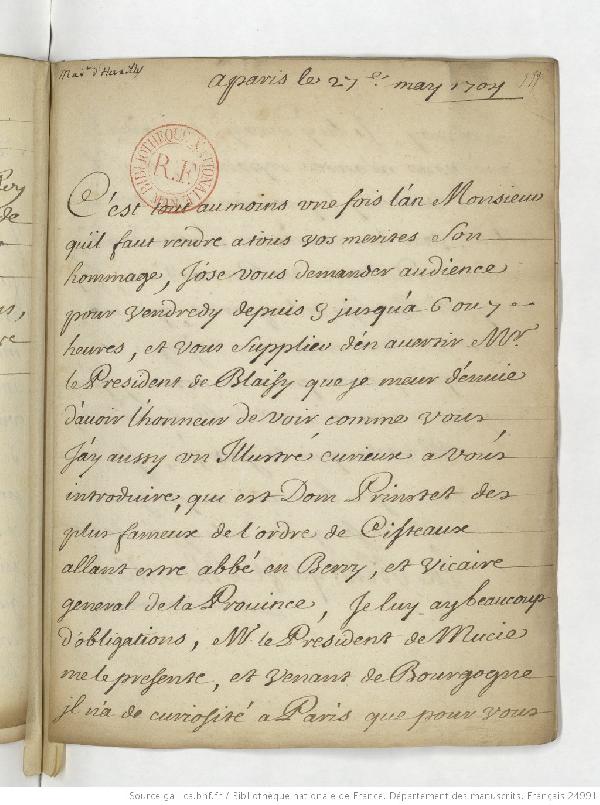 aparis le 27e. may 1704
BIBLIOTHEQUE NATIONALE
R.F.
C'est tout au moins vne fois l'an Monsieur
qu'il faut rendre a tous vos merites son
hommage, J'ose vous demander audience
pour vendredy depuis 3 jusqu'a 6 ou 7
heures, et vous supplier d'en auertir Mr.
le President de Blaisy que je meur d'enuie
d'auoir l'honneur de voir comme vous
J'ay aussy vn Illustré curieux a vous
introduire, qui est Dom Prinstet des
plus fameux de l'ordre de Cisteaux
allant estre abbé en Berry, et vicaire
general de la Prouince, Je luy ay beaucoup
d'obligations, Mr. le President de Mucie
me le presente, et venant de Bourgogne
jl n'a de curiosité a Paris que pour vous
Roy
de
us,
re
Source gallica.bnf.fr / Bibliothèque nationale de France. Département des manuscrits. Français 24991